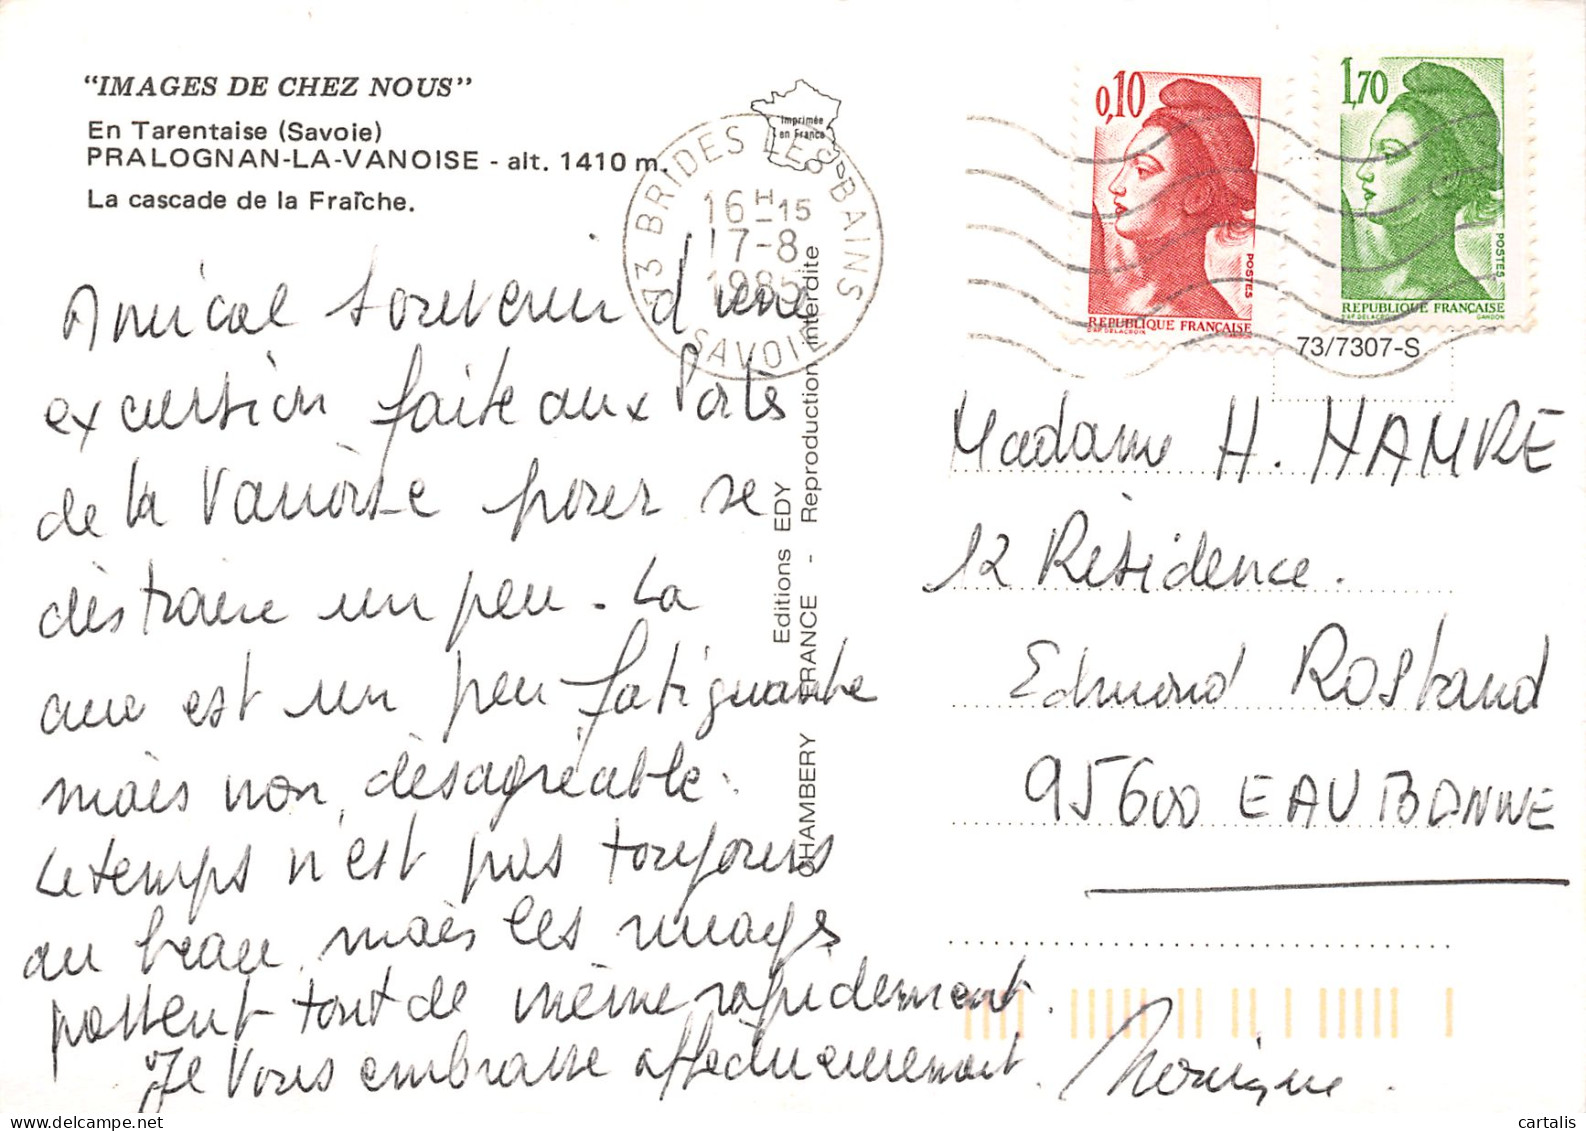 "IMAGES DE CHEZ NOUS"
En Tarentaise (Savoie)
PRALOGNAN-LA-VANOISE - alt. 1410 m.
La cascade de la Fraîche.
Imprimée
en France
73 BRIDES LES BAINS
16H-15
17-8
1985
SAVOIE
0,10
POSTES
REPUBLIQUE FRANÇAISE
D'AP. DELACROIX
1,70
POSTES
REPUBLIQUE FRANÇAISE
D'AP. DELACROIX GANDON
73/7307-S
Amical souvenir d'une
excursion faite aux Portes
de la Vanoise pour se
distraire un peu. La
cure est un peu fatiguante
mais non désagréable.
Le temps n'est pas toujours
au beau, mais les nuages
passent tout de même rapidement.
Je vous embrasse affectueusement.
Monique
Editions EDY
CHAMBERY FRANCE - Reproduction interdite
Madame H. HAMRE
12 Résidence.
Edmond Rostand
95600 EAUBONNE
cartalis